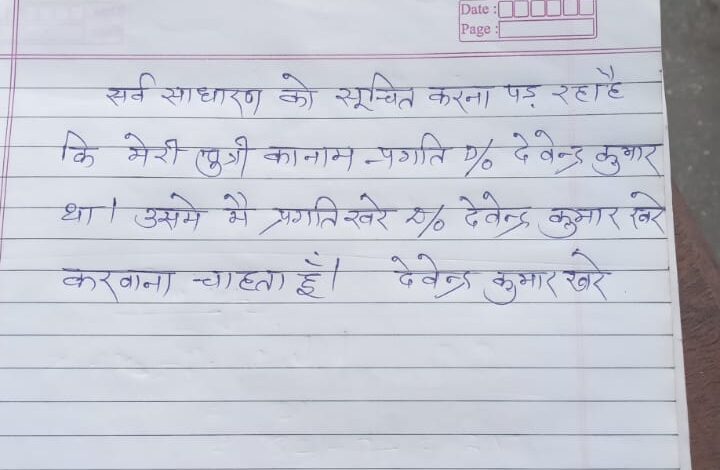 Date :
Page :
सर्व साधारण को सूचित करना पड़ रहा है
कि मेरी पुत्री का नाम प्रगति D/o देवेन्द्र कुमार
था। उसमे मै प्रगति खरे D/o देवेन्द्र कुमार खरे
करवाना चाहता हूँ। देवेन्द्र कुमार खरे